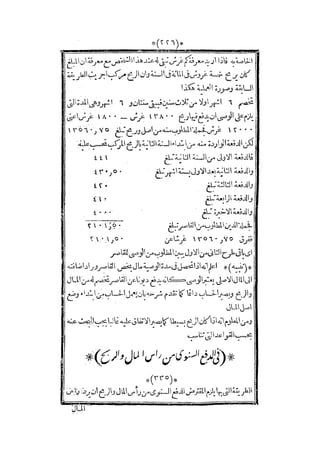 *(٢٢٦)*
الخاصة به فاذا اريد معرفة كم غرش تبقى له عند هذا الشخص مع معرفة ان المبلغ
كان بربح خمسة غروش فى المائة فى السنة وان الربح مركب اجريت الطريقة
السابقة وصورة العملية هكذا
تخصم ٦ اشهر اولا من ثلاث سنين فيبقى سنتان و ٦ اشهر وهى المدة التى
يلزم على الوصى ان يدفع فيها ربح ١٣٨٠٠ غرش — ١٨٠٠ غرش اعنى
١٢٠٠٠ غرش فجملة المطلوب منه من اصل وربح تبلغ ١٣٥٦٠,٧٥
لكن الدفعة الواردة منه من ابتداء السنة الثانية بالربح المركب تحسب عليه
فالدفعة الاولى من السنة الثانية تبلغ ٤٤١
والدفعة الثانية بعد الاولى بستة اشهر تبلغ ٤٣٠,٥٠
والدفعة الثالثة تبلغ ٤٢٠
والدفعة الرابعة تبلغ ٤١٠
والدفعة الاخيرة تبلغ ٤٠٠
فجملة الدين المطلوب من القاصر تبلغ ٢١٠١,٥٠
تفرق ١٣٥٦٠,٧٥ غرشا عن ٢١٠١,٥٠
اى باقى طرح الثانى من الاول يبين المطلوب من الوصى للقاصر
*(تنبيه)* اعلم انه اذا تحصل فى مدة الوصية مال يخص القاصر وراد اضافته
الى المال الاصلى يعتبر الوصى كانه يدفع ديونا عن القاصر تخصم له من المال
والربح ويصير الحساب دائما كما تقدم شرحه بان يعمل الحساب من ابتداء وضع
اصل المال
ومن المعلوم انه اذا كان الربح بسيطا كما يصير الاتفاق عليه غالبا يجب البحث عنه
بحسب القواعد التى تناسب
*(فى الدفع السنوى من راس المال والربح)*
*(٣٣٥)*
الطريقة التى بها يلزم المقترض الدفع السنوى من رأس المال والربح ان يرد
المال